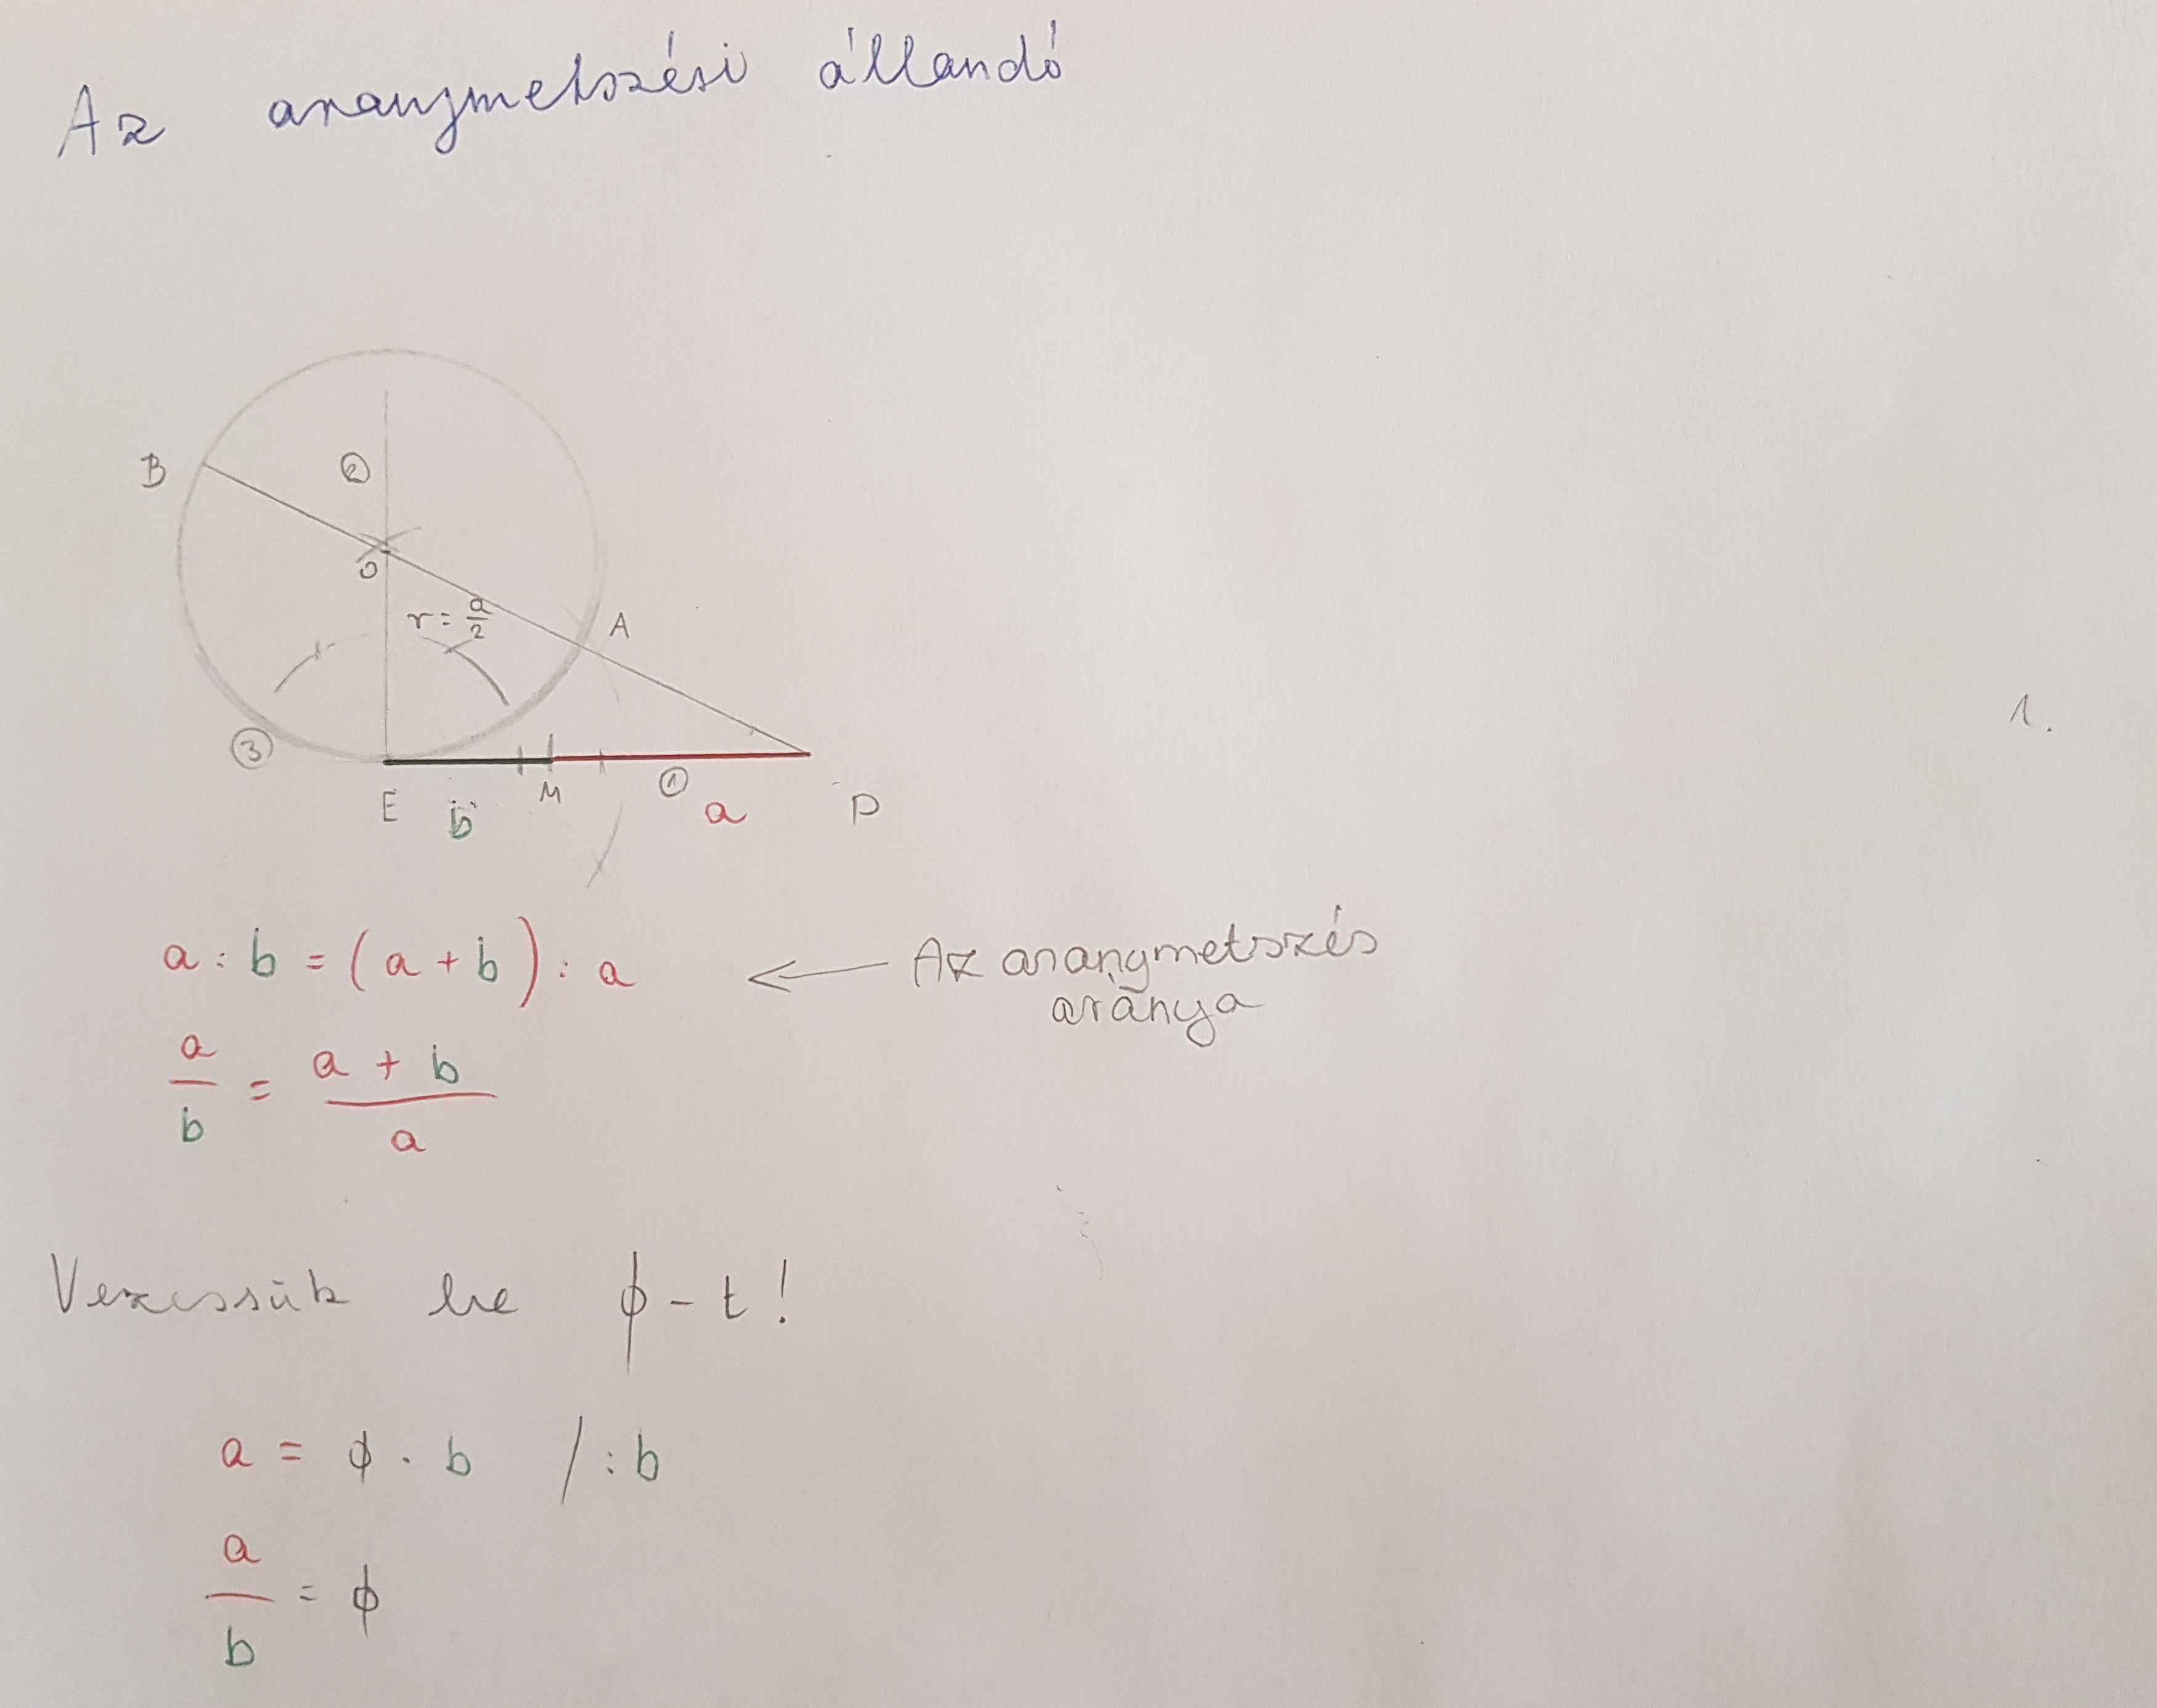 Az aranymetszési állandó
B
②
O
r = a/2
A
1.
③
①
E
M
b
a
P
a : b = (a + b) : a ← Az aranymetszés
aránya
a/b = (a + b)/a
Vezessük be ϕ-t!
a = ϕ · b / : b
a/b = ϕ